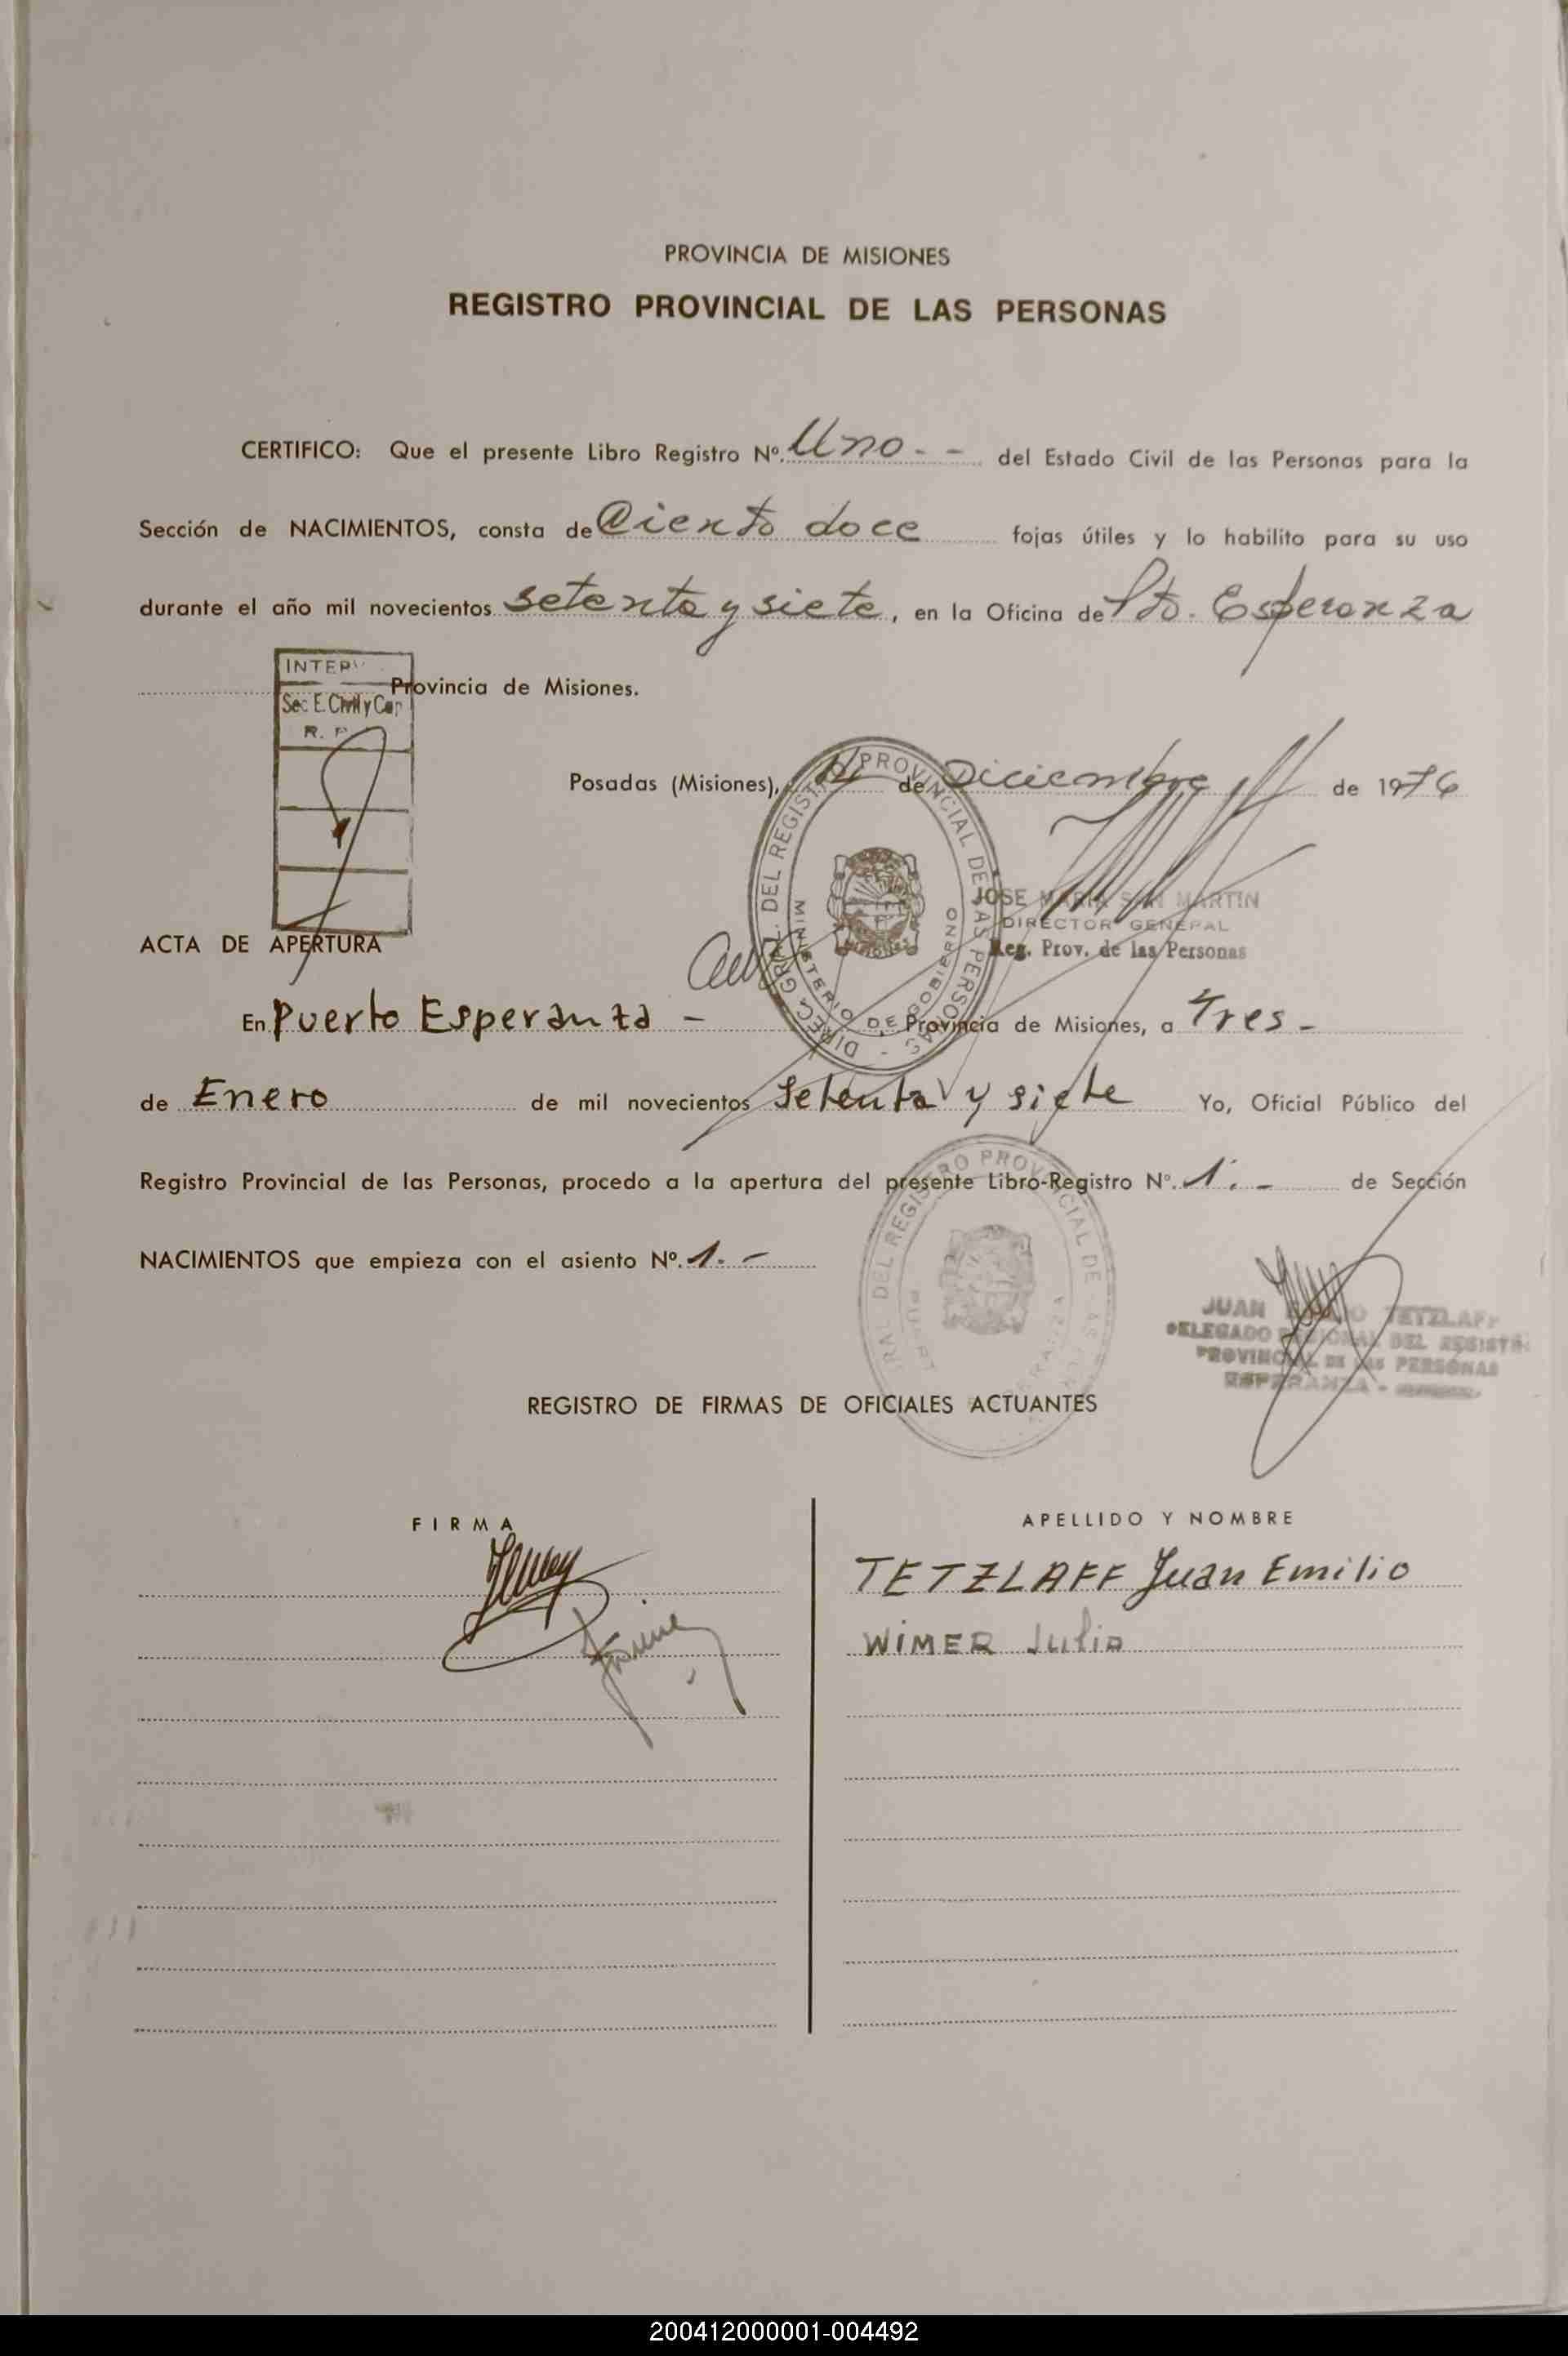 PROVINCIA DE MISIONES
REGISTRO PROVINCIAL DE LAS PERSONAS
CERTIFICO: Que el presente Libro Registro Nº. Uno - - del Estado Civil de las Personas para la
Sección de NACIMIENTOS, consta de Ciento doce fojas útiles y lo habilito para su uso
durante el año mil novecientos setenta y siete, en la Oficina de Pto. Esperanza
Provincia de Misiones.
INTERV
Sec E. Civil y Cap
R. P
Posadas (Misiones), de Diciembre de 1976
DIREC. GRAL. DEL REGISTRO PROVINCIAL DE LAS PERSONAS -
MINISTERIO DE GOBIERNO
JOSE MARIA SAN MARTIN
DIRECTOR GENERAL
Reg. Prov. de las Personas
ACTA DE APERTURA
En Puerto Esperanza - Provincia de Misiones, a Tres -
de Enero de mil novecientos Setenta y siete Yo, Oficial Público del
Registro Provincial de las Personas, procedo a la apertura del presente Libro-Registro Nº. 1. - de Sección
NACIMIENTOS que empieza con el asiento Nº. 1. -
GRAL. DEL REGISTRO PROVINCIAL DE
JUAN TETZLAFF
DELEGADO REGIONAL DEL REGISTR
PROVINCIAL DE LAS PERSONAS
ESPERANZA -
REGISTRO DE FIRMAS DE OFICIALES ACTUANTES
FIRMA
APELLIDO Y NOMBRE
TETZLAFF Juan Emilio
WIMER Julio
200412000001-004492